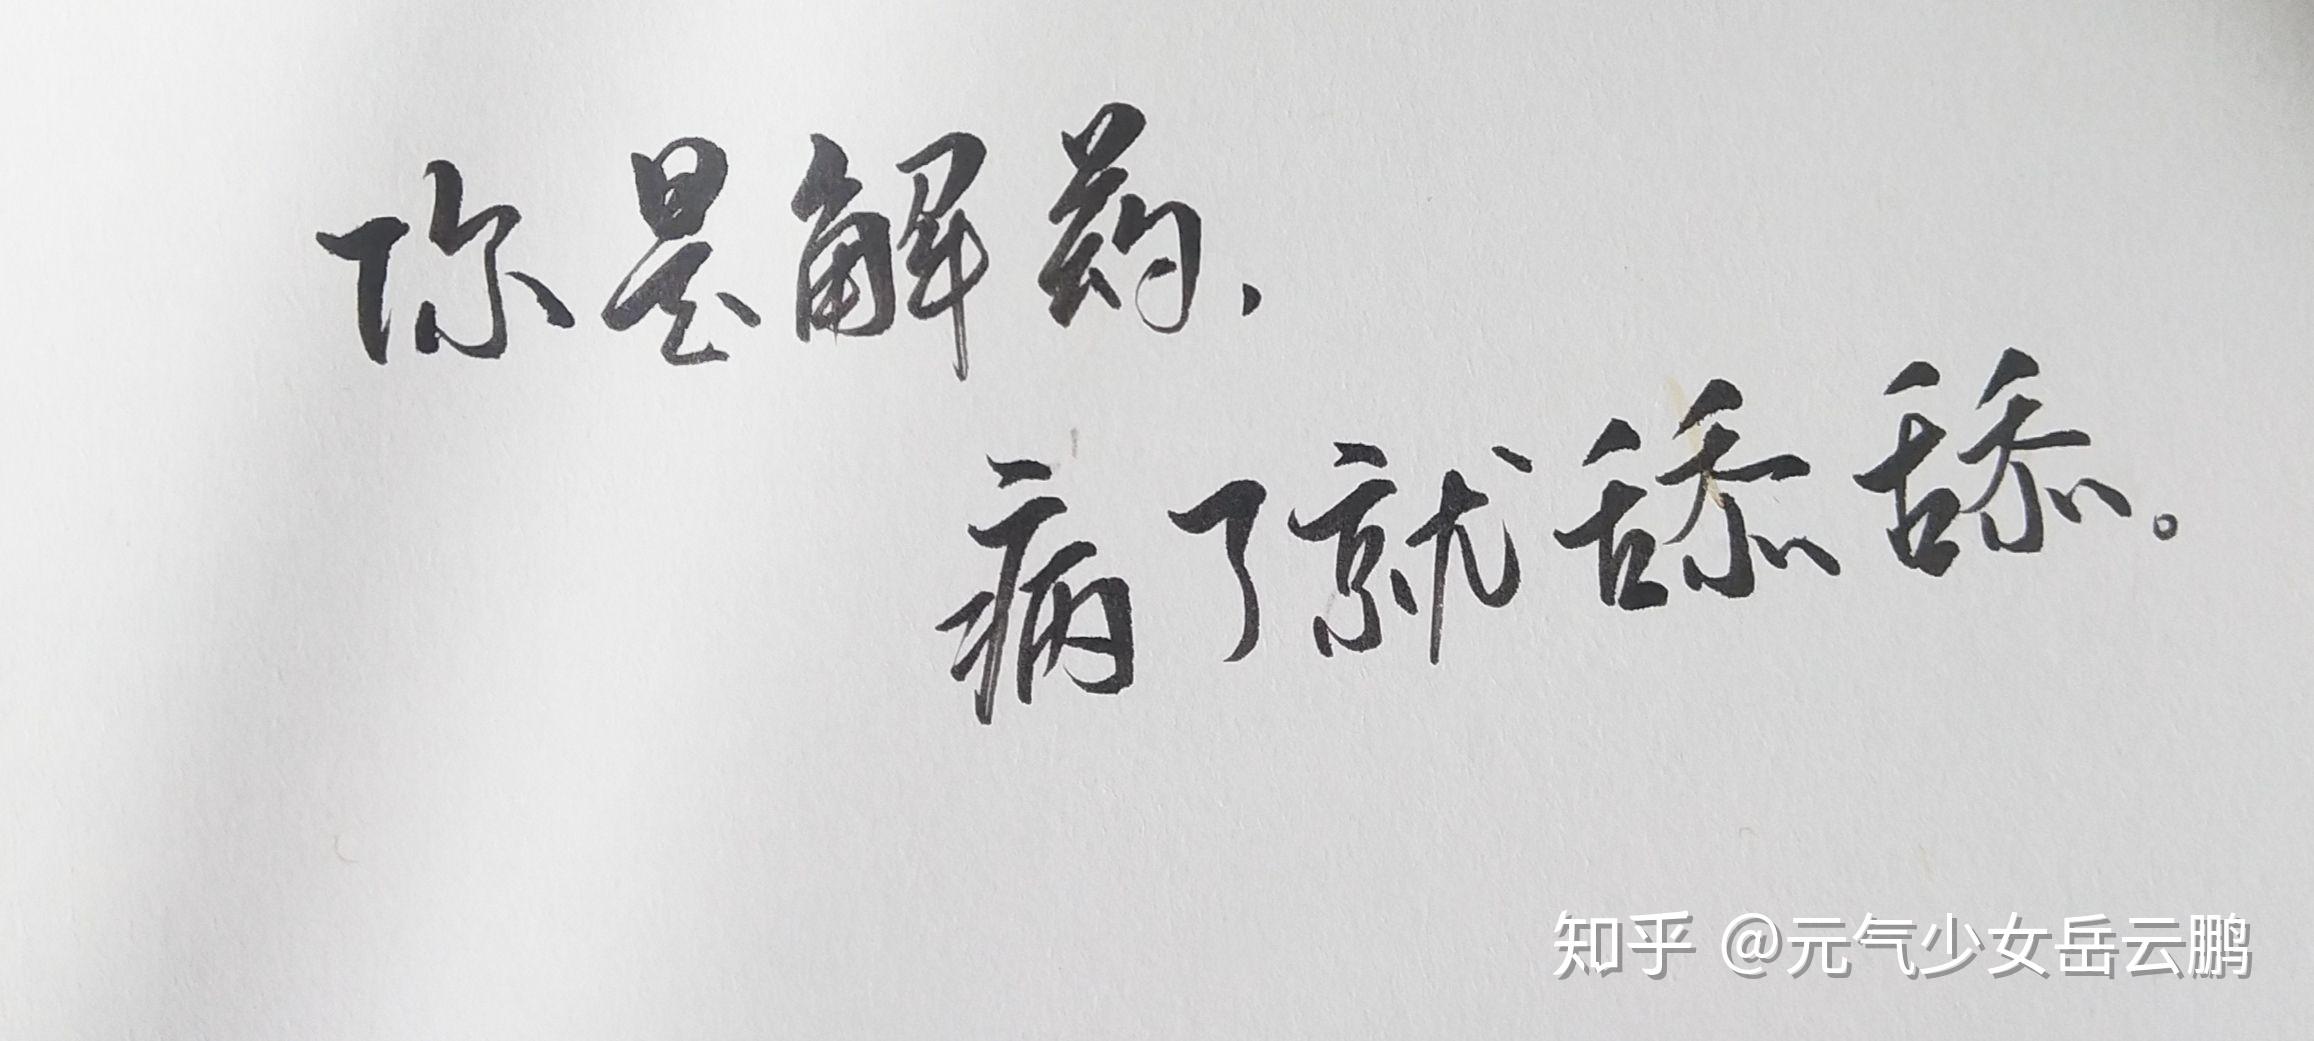 你是解药，
病了就舔舔。
知乎 @元气少女岳云鹏